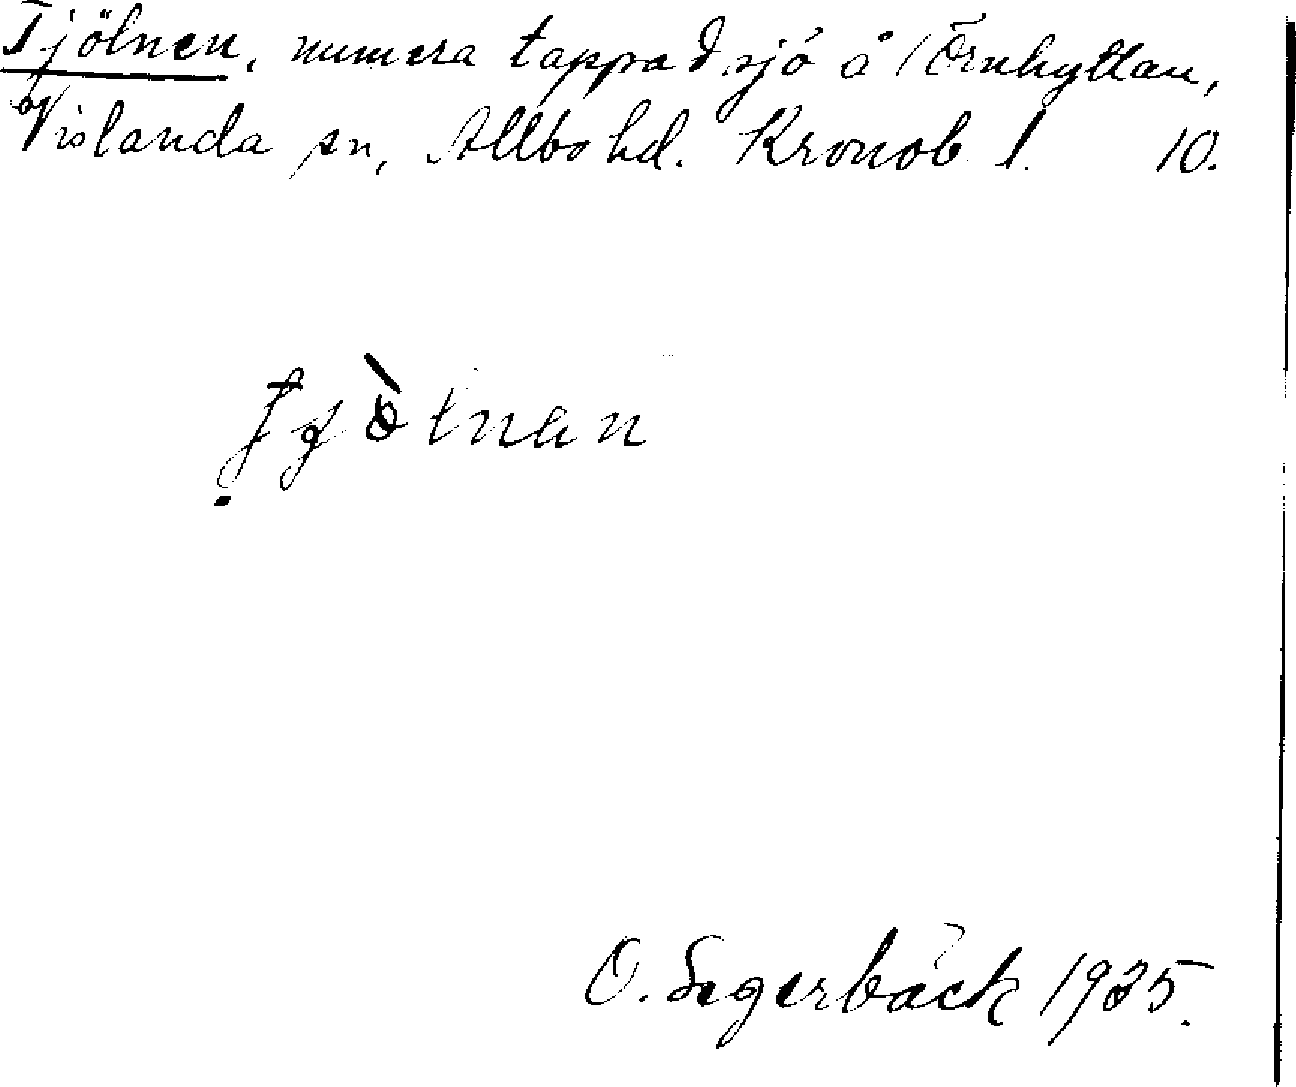 Tjölnen, numera tappad sjö å Örnhyttan,
Vislanda sn, Allbo hd. Kronob l. 10.
O. Segerbäck 1935.